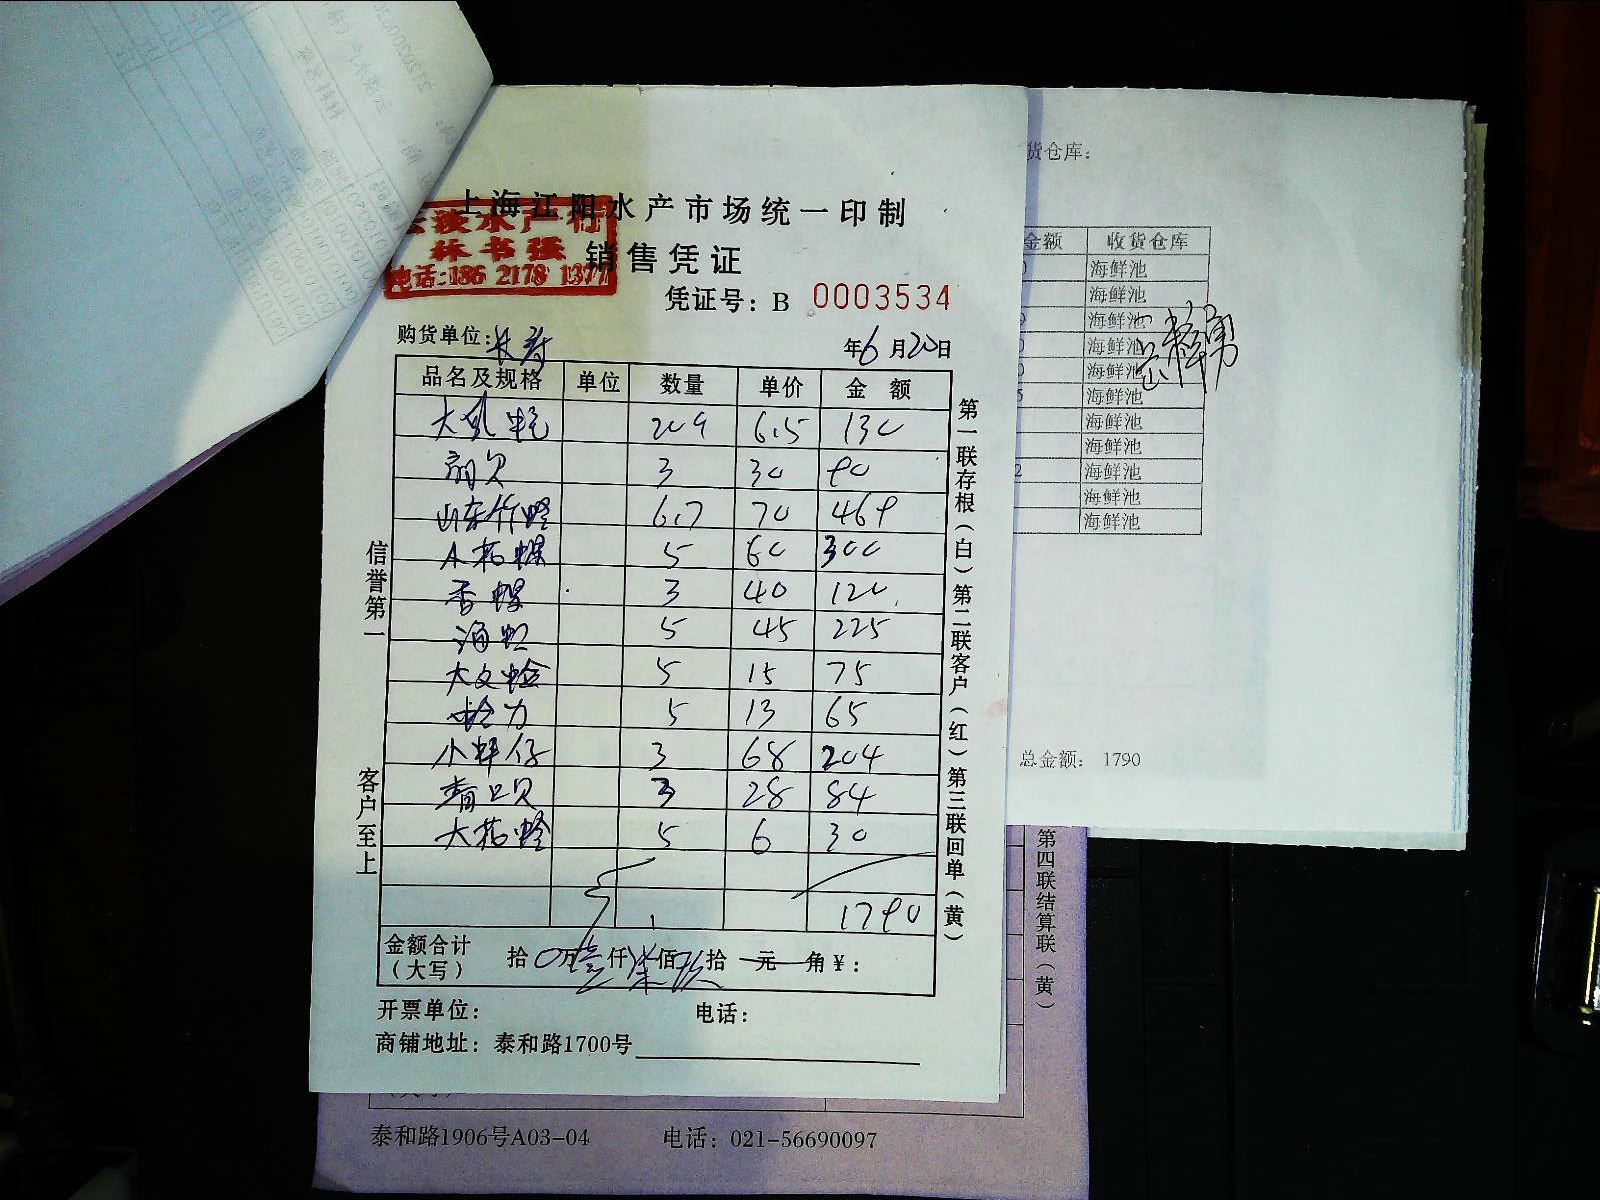 上海江阳水产市场统一印制
水产行
林书强
电话:186 2178 1377
销售凭证
凭证号: B 0003534
购货单位: 长寿
年6月20日
品名及规格 单位 数量 单价 金额
大乳蚌 20个 6.5 130
扇贝 3 30 90
山东竹蛏 6.7 70 469
5 60 300
香螺 3 40 120
海虹 5 45 225
大文蛤 5 15 75
蛤力 5 13 65
小蚌仔 3 68 204
青口贝 3 28 84
大花蛤 5 6 30
1790
金额合计
(大写)
拾 0万壹仟柒佰玖拾 元 角 ¥:
开票单位: 电话:
商铺地址: 泰和路1700号
信誉第一
客户至上
第一联存根(白)第二联客户(红)第三联回单(黄)
货仓库:
金额 收货仓库
海鲜池
海鲜池
海鲜池
海鲜池
海鲜池
海鲜池
海鲜池
海鲜池
海鲜池
海鲜池
海鲜池
总金额: 1790
第四联结算联(黄)
泰和路1906号A03-04 电话: 021-56690097